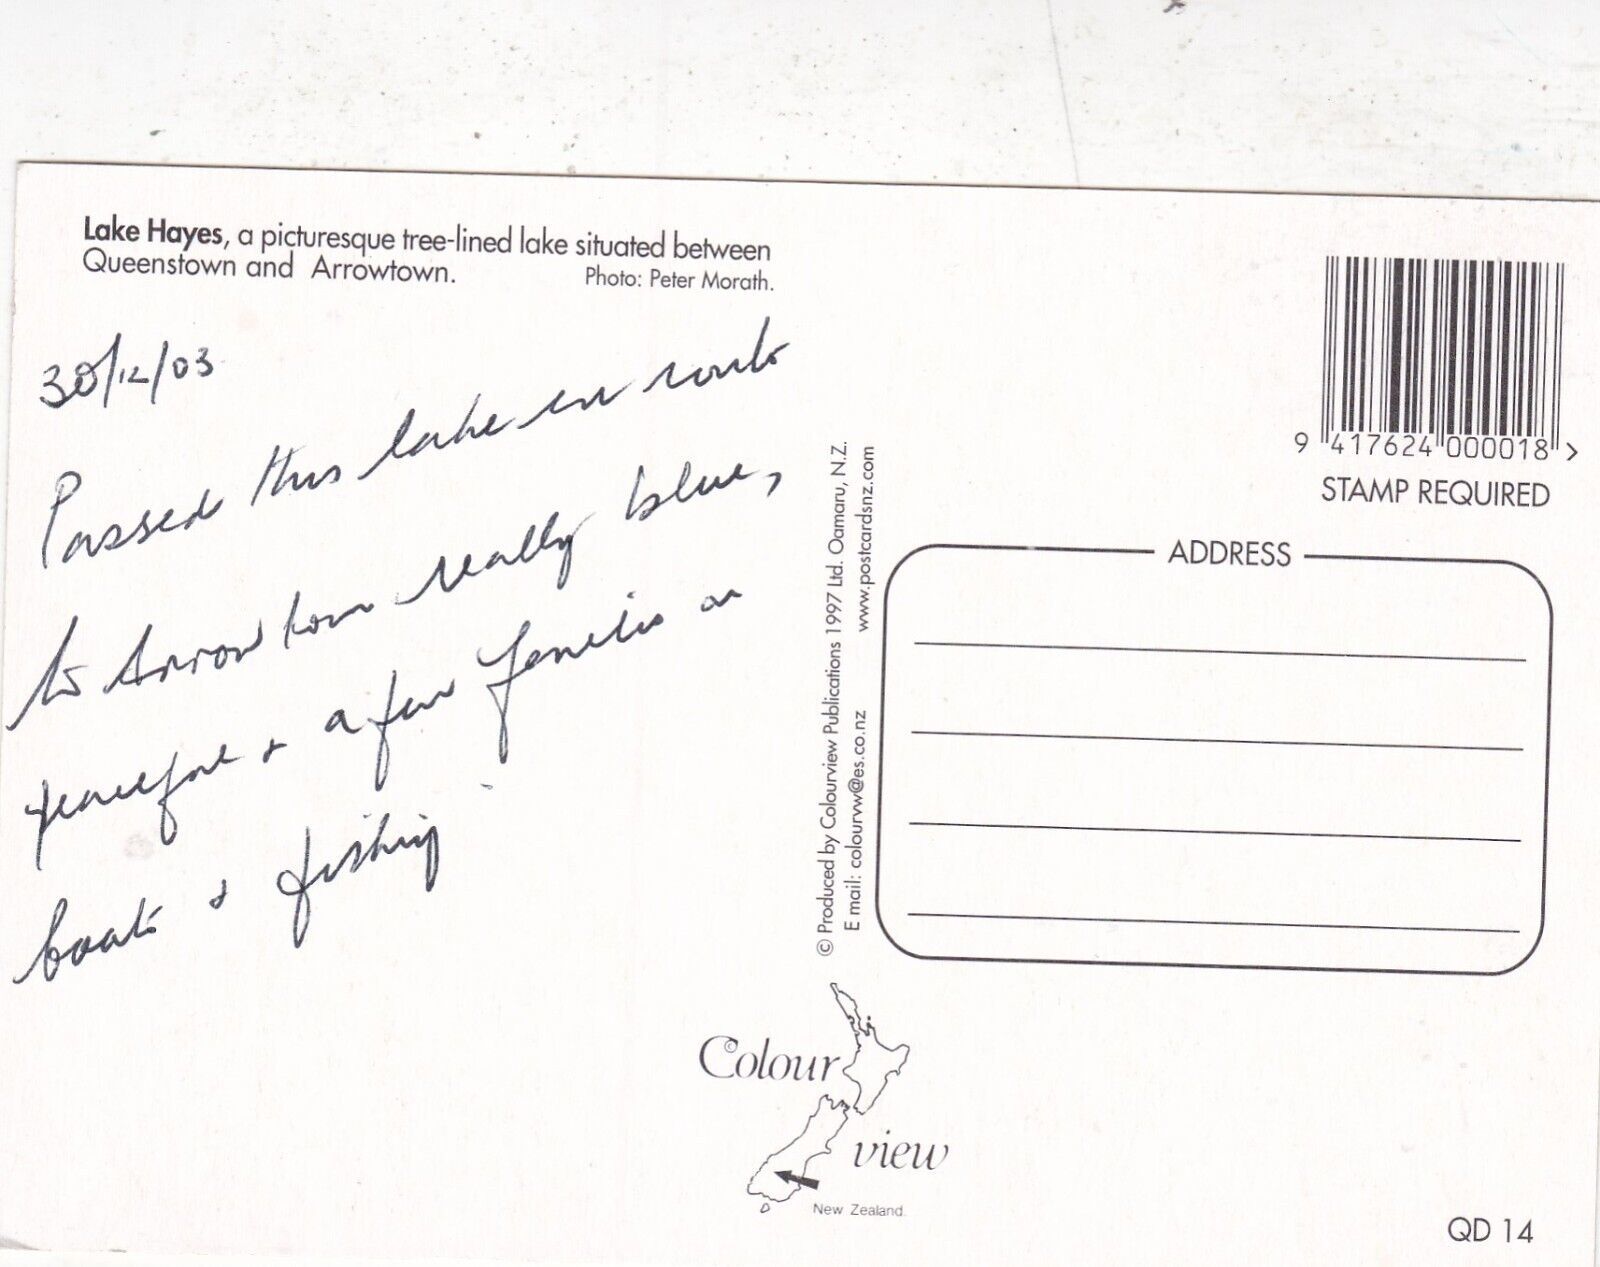 Lake Hayes, a picturesque tree-lined lake situated between
Queenstown and Arrowtown.
Photo: Peter Morath.
30/12/03
Passed this lake en route
to Arrowtown really blue,
peaceful + a few families on
boats + fishing
© Produced by Colourview Publications 1997 Ltd. Oamaru, N.Z.
E mail: colourvw@es.co.nz www.postcardsnz.com
9 417624 000018 >
STAMP REQUIRED
ADDRESS
Colour
©
view
New Zealand.
QD 14